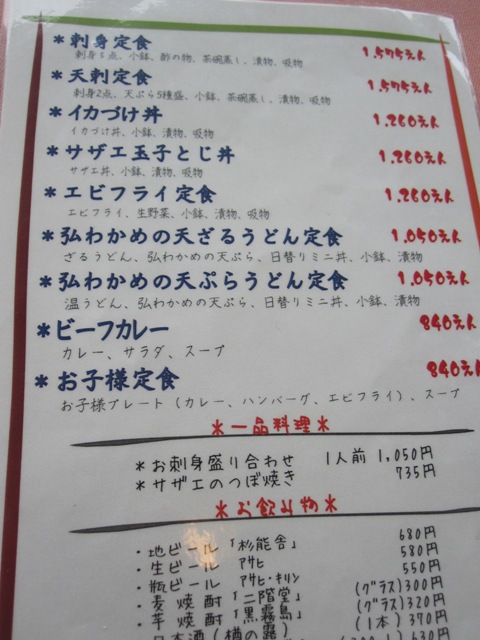 *刺身定食 1,575えん
刺身5点、小鉢、酢の物、茶碗蒸し、漬物、吸物
*天刺定食 1,575えん
刺身2点、天ぷら5種盛、小鉢、茶碗蒸し、漬物、吸物
*イカづけ丼 1,260えん
イカづけ丼、小鉢、漬物、吸物
*サザエ玉子とじ丼 1,260えん
サザエ丼、小鉢、漬物、吸物
*エビフライ定食 1,260えん
エビフライ、生野菜、小鉢、漬物、吸物
*弘わかめの天ざるうどん定食 1,050えん
ざるうどん、弘わかめの天ぷら、日替りミニ丼、小鉢、漬物
*弘わかめの天ぷらうどん定食 1,050えん
温うどん、弘わかめの天ぷら、日替りミニ丼、小鉢、漬物
*ビーフカレー 840えん
カレー、サラダ、スープ
*お子様定食 840えん
お子様プレート(カレー、ハンバーグ、エビフライ)、スープ
*一品料理*
*お刺身盛り合わせ 1人前 1,050円
*サザエのつぼ焼き 735円
*お飲み物*
・地ビール「杉能舎」 680円
・生ビール アサヒ 580円
・瓶ビール アサヒ・キリン 550円
・麦焼酎「二階堂」 (グラス)300円
・芋焼酎「黒霧島」 (グラス)320円
日本酒(樽の露) (1本)370円